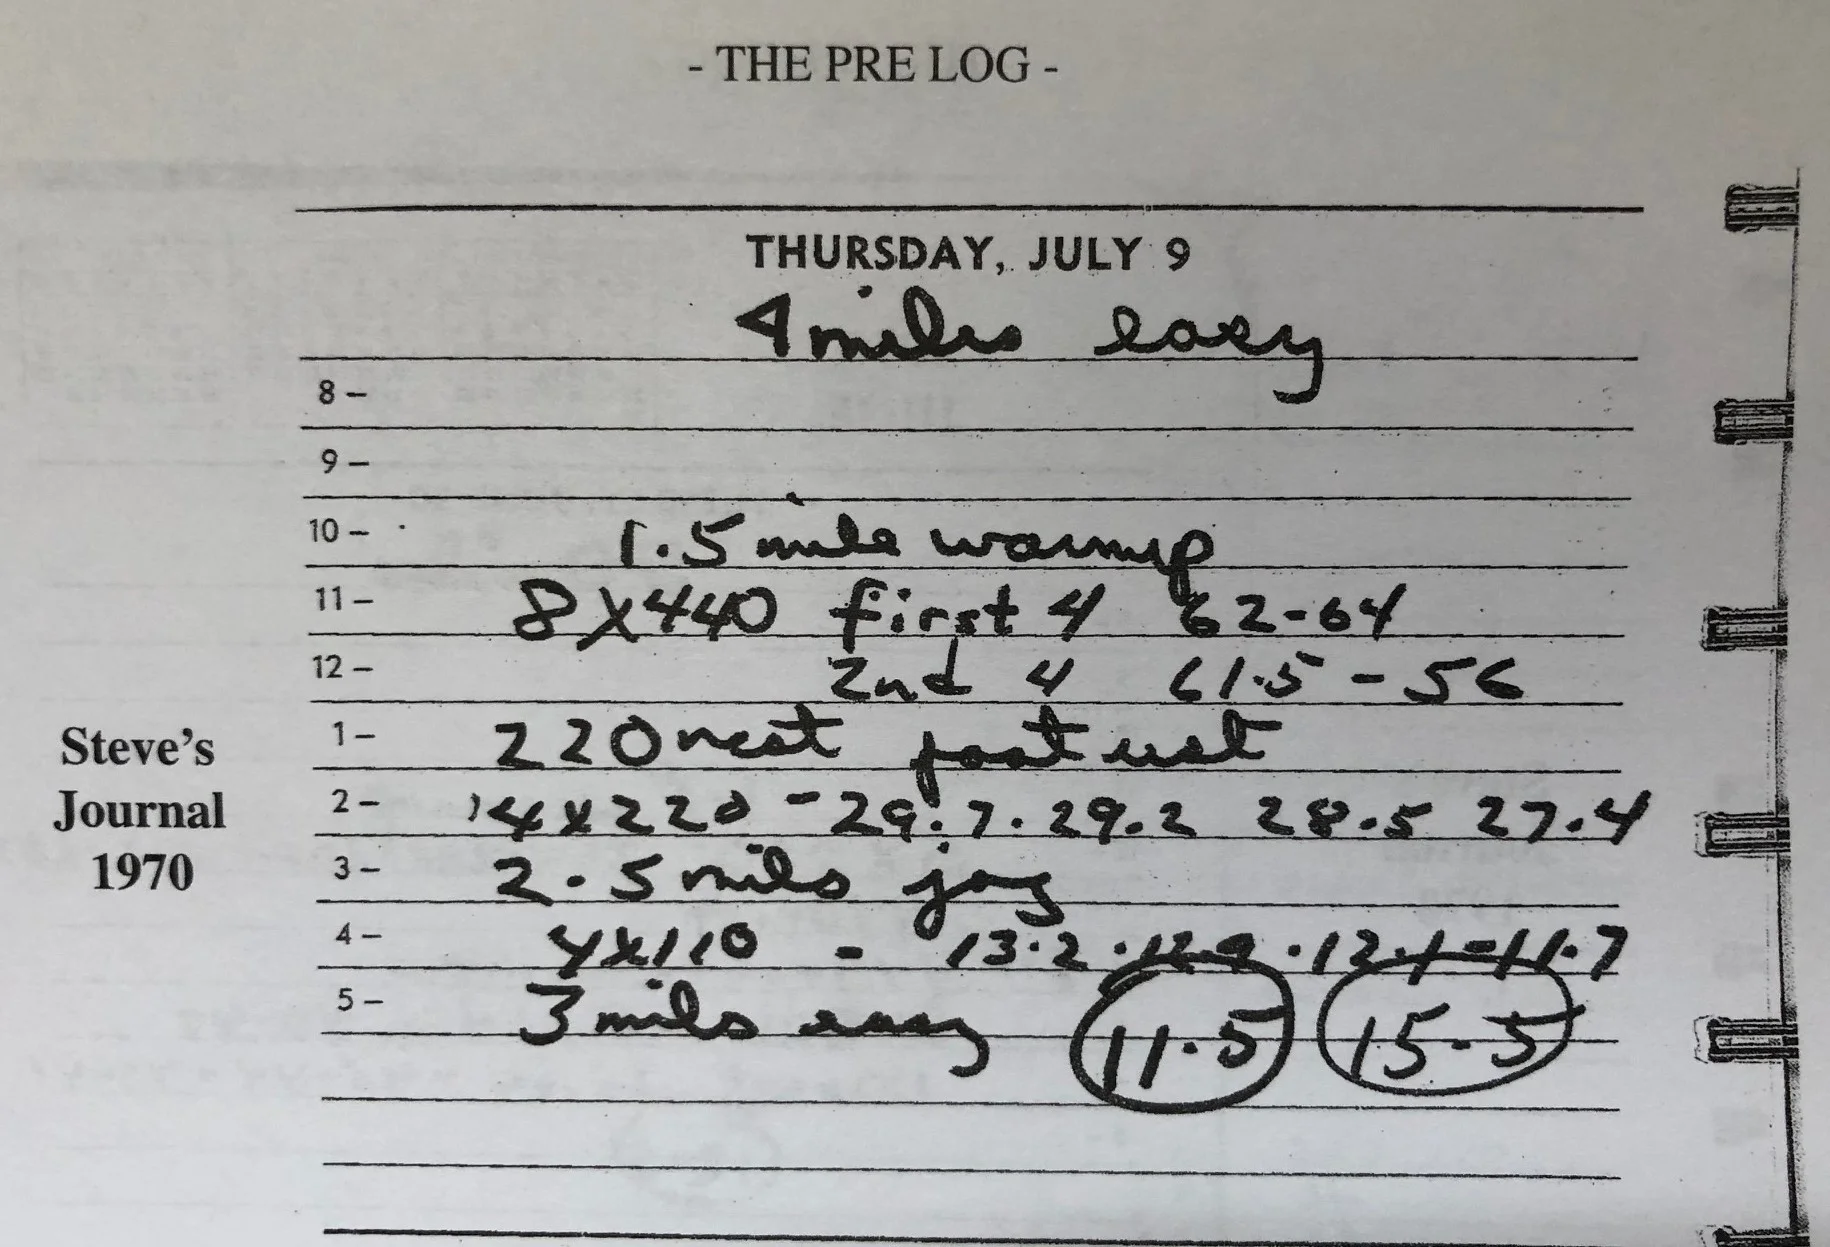 - THE PRE LOG -
THURSDAY, JULY 9
4 miles easy
8 -
9 -
10 - 1.5 mile warmup
11 - 8 X 440 first 4 62-64
12 - 2nd 4 61.5 - 56
Steve's
Journal
1970
1 - 220 rest
2 - 4 x 220 - 29.7. 29.2 28.5 27.4
3 - 2.5 miles jog
4 - 4 x 110 - 13.2 . 12.9 . 12.1 - 11.7
5 - 3 miles easy 11.5 15.5